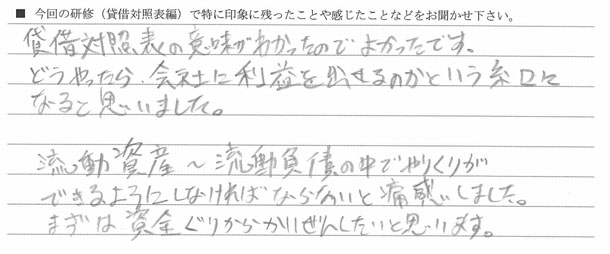 ■ 今回の研修（貸借対照表編）で特に印象に残ったことや感じたことなどをお聞かせ下さい。
貸借対照表の意味がわかったのでよかったです。
どうやったら、会社に利益を出せるのかという糸口に
なると思いました。
流動資産～流動負債の中でやりくりが
できるようにしなければならないと痛感しました。
まずは資金ぐりからかいぜんしたいと思います。